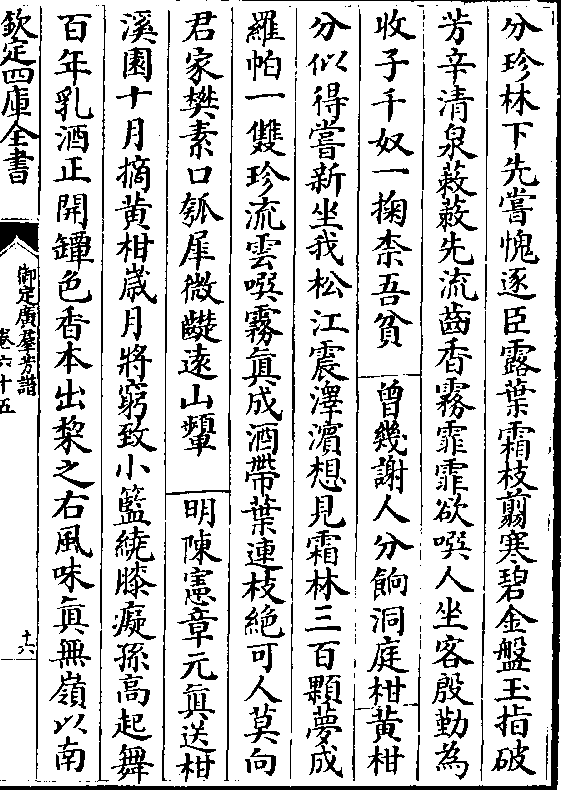 分珍林下先嘗愧逐臣露葉霜枝翦寒碧金盤玉指破
芳辛清泉蔌蔌先流齒香霧霏霏欲噀人坐客殷勤為
收子千奴一掬柰吾貧 曾幾謝人分餉洞庭柑黃柑
分似得嘗新坐我松江震澤濵想見霜林三百顆夢成
羅帕一雙珍流雲噀霧眞成酒帶葉連枝絶可人莫向
君家樊素口瓠犀微齼遠山顰 明陳憲章元眞送柑
溪園十月摘黃柑歲月將窮致小籃繞膝癡孫高起舞
百年乳酒正開罈色香本出棃之右風味眞無嶺以南
欽定四庫全書
御定廣羣芳譜
卷六十五
十六